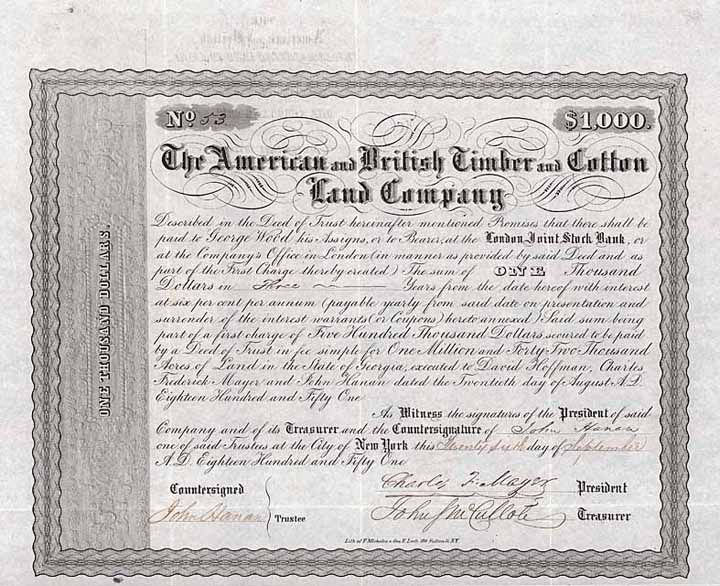 No 53
$1,000.
The American and British Timber and Cotton
Land Company
Described in the Deed of Trust hereinafter mentioned Promises that there shall be
paid to George Wood his Assigns, or to Bearer, at the London Joint Stock Bank, or
at the Company's Office in London (in manner as provided by said Deed and as
part of the First Charge thereby created) The sum of ONE Thousand
Dollars in Three Years from the date hereof with interest
at six per cent per annum (payable yearly from said date on presentation and
surrender of the interest warrants (or Coupons) hereto annexed) Said sum being
part of a first charge of Five Hundred Thousand Dollars, secured to be paid
by a Deed of Trust in fee simple for One Million and Forty Two Thousand
Acres of Land in the State of Georgia, executed to David Hoffman, Charles
Frederick Mayer and John Hanan dated the Twentieth day of August A.D.
Eighteen Hundred and Fifty One
As Witness the signatures of the President of said
Company and of its Treasurer and the Countersignature of John Hanan
one of said Trustees at the City of New York this Twenty sixth day of September
A.D. Eighteen Hundred and Fifty One
Countersigned
Charles F. Mayer President
John Hanan Trustee
John Treasurer
ONE THOUSAND DOLLARS.